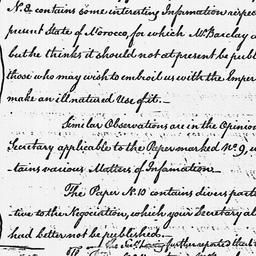 No. 8 contains some interesting Information respec
present State of Morocco, for which Mr. Barclay
but he thinks it should not at present be publ
those who may wish to embroil us with the Emper
make an ill natured Use of it.—
Similar Observations are in the Opinion
Secretary applicable to the Paper marked No. 9, w
-tains various Matters of Information—
The Paper No. 10 contains divers parti
-tive to the Negociation, which your Secretary al
had better not be published.—
The Secy. further reports that